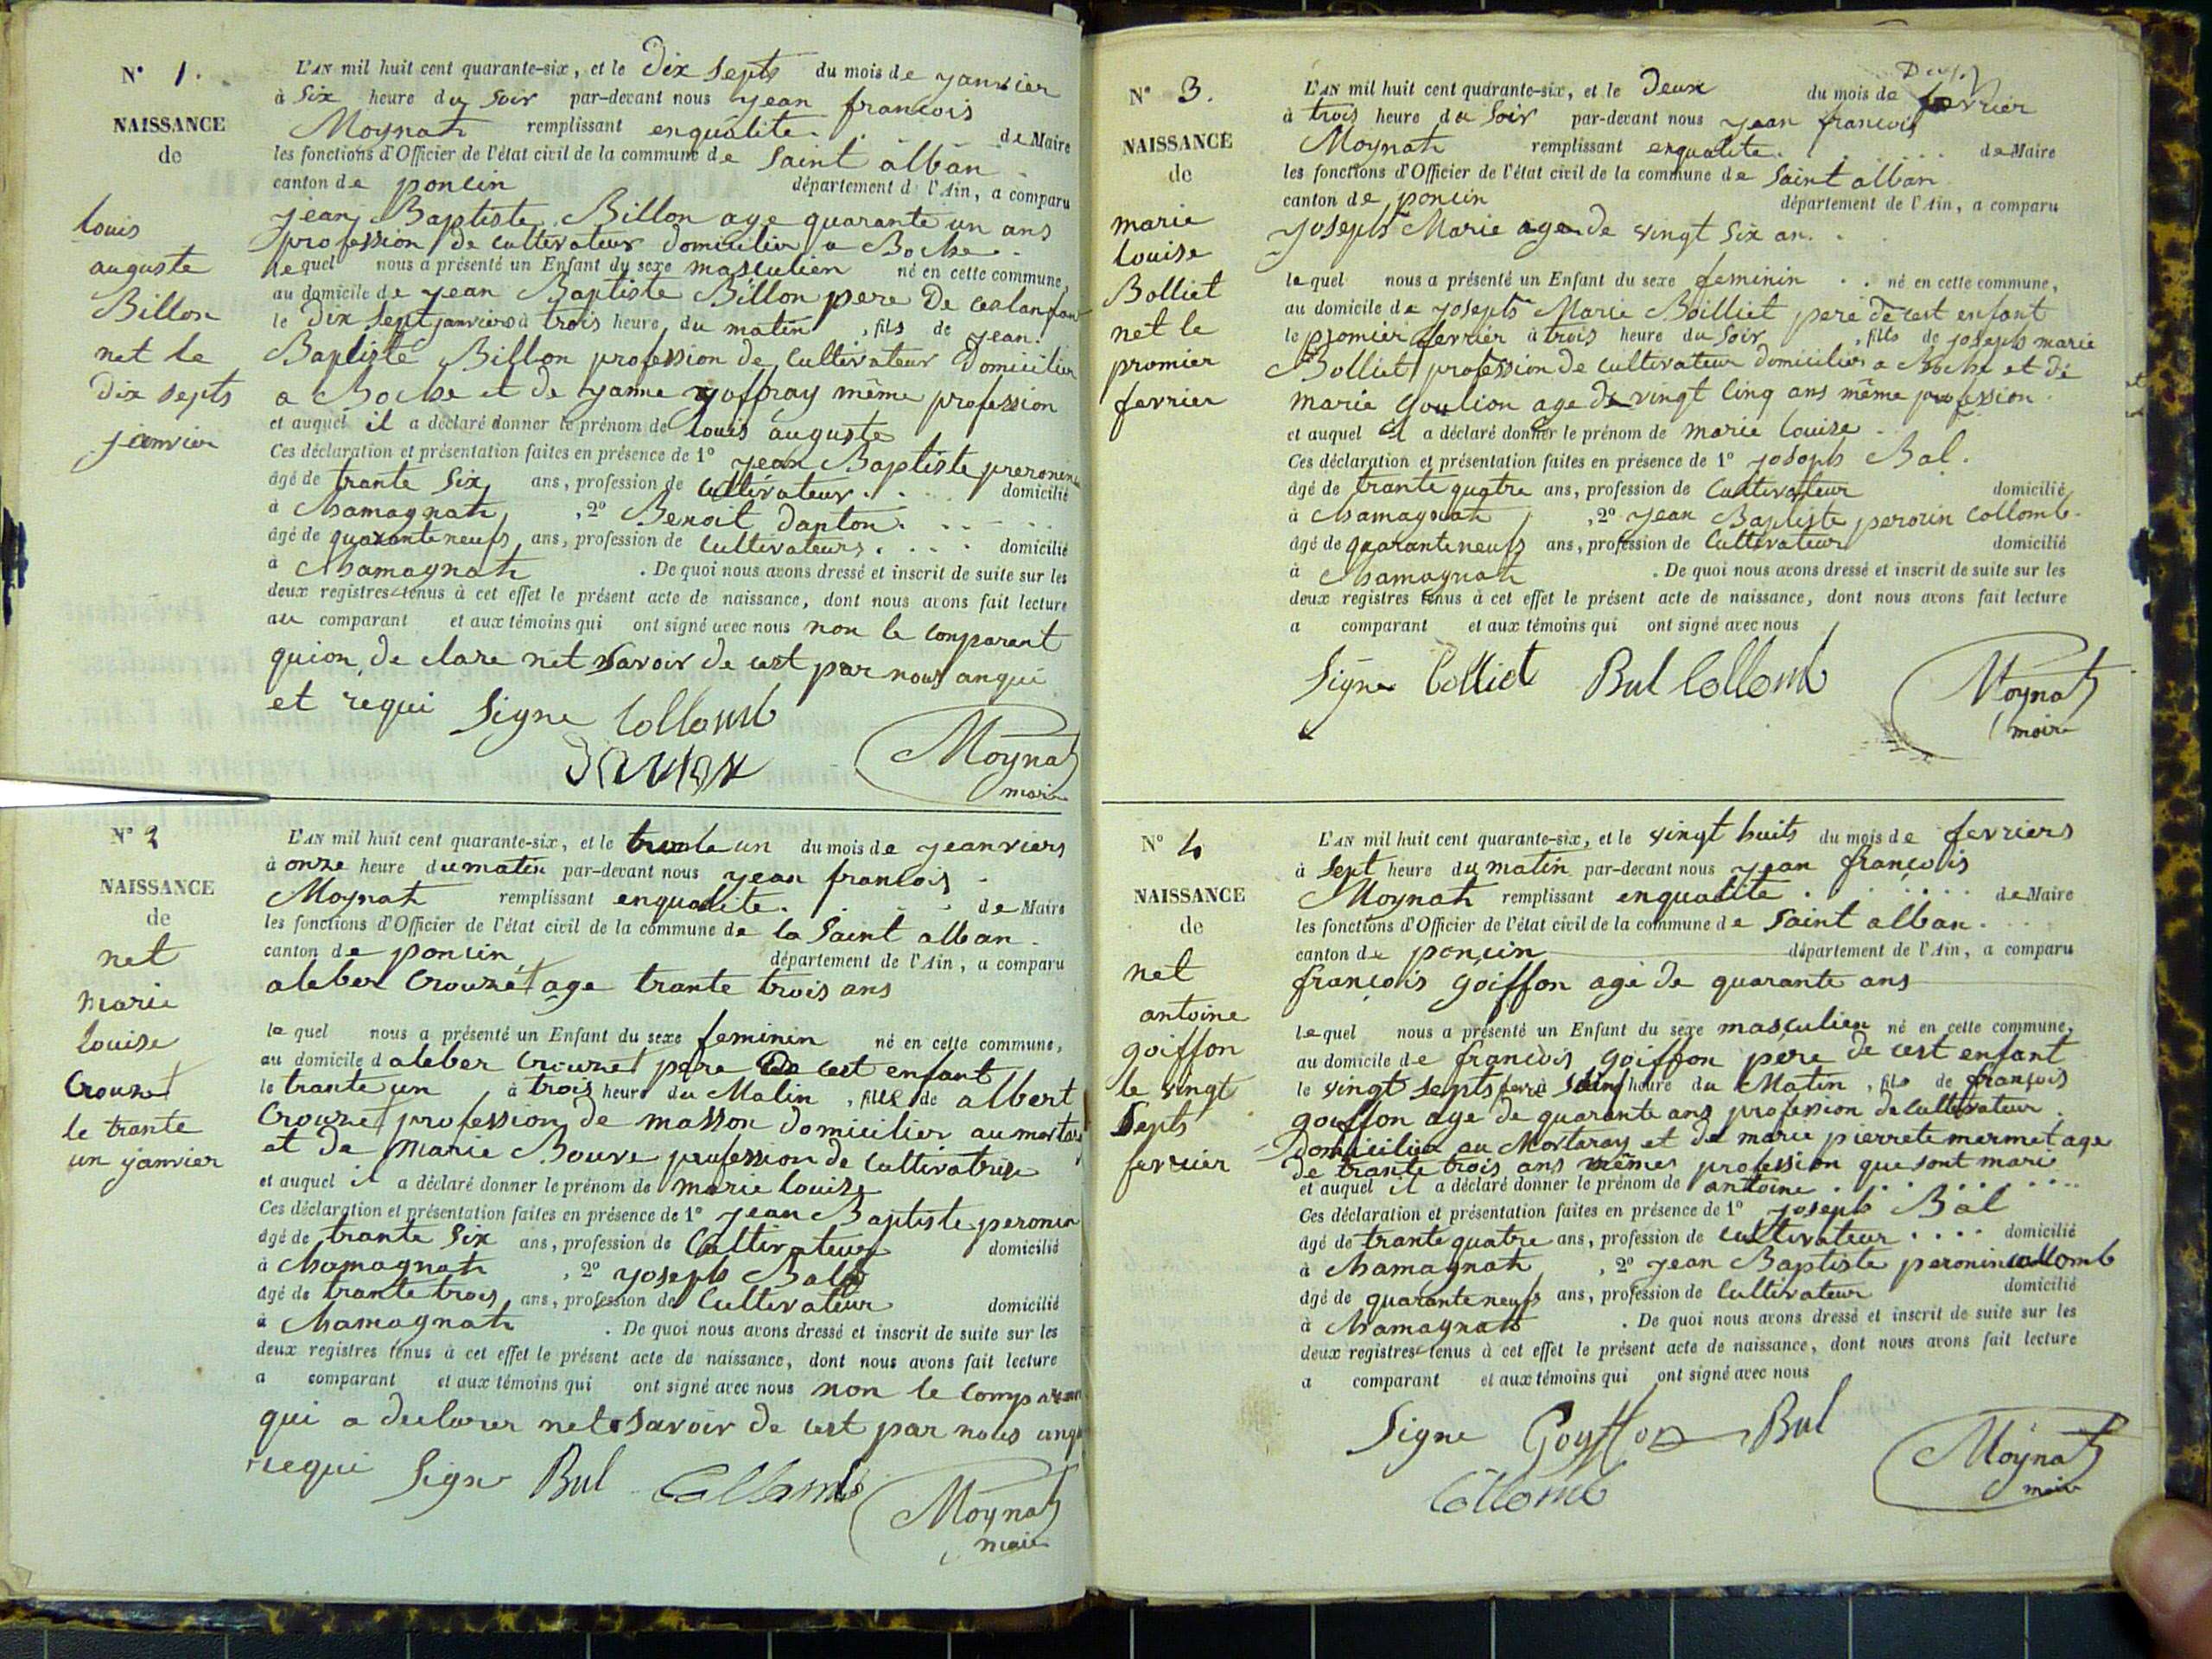 N° 1.
NAISSANCE
de
louis
auguste
Billon
net le
dix septs
janvier
L'AN mil huit cent quarante-six, et le Dix Septs du mois de yanvier
à Six heure du Soir par-devant nous yean francois
Moynat remplissant enqualite. de Maire
les fonctions d'Officier de l'état civil de la commune de Saint alban
canton de poncin département d l'Ain, a comparu
jean Baptiste Billon age quarante un ans
profession de cultivateur domicilier a Boche
le quel nous a présenté un Enfant du sexe masculien né en cette commune,
au domicile de yean Baptiste Billon pere De
le Dix Sept janvier à trois heure du matin, fils de jean
Baptiste Billon profession de cultivateur Domicilier
a Boche et de yanne yoffray même profession
et auquel il a déclaré donner le prénom de louis auguste
Ces déclaration et présentation faites en présence de 1° yean Baptiste
âgé de trante Six ans, profession de cultivateur . . domicilié
à Chamagnat, 2° Benoit danton.
âgé de quarante neufs ans, profession de cultivateurs . . . domicilié
à Chamagnat . De quoi nous avons dressé et inscrit de suite sur les
deux registres tenus à cet effet le présent acte de naissance, dont nous avons fait lecture
au comparant et aux témoins qui ont signé avec nous non le comparent
quion de clare net Savoir de cest par nous anqui
et requi Signe Collomb
Moynat
maire
N° 2
NAISSANCE
de
net
marie
louise
Crouzet
le trante
un yanvier
L'AN mil huit cent quarante-six, et le trante un du mois de yeanviers
à onze heure du matin par-devant nous yean francois
Moynat remplissant enqualite. de Maire
les fonctions d'Officier de l'état civil de la commune de la Saint alban.
canton de poncin département de l'Ain, a comparu
aleber Crouzet age trante trois ans
le quel nous a présenté un Enfant du sexe feminin né en cette commune,
au domicile d aleber Crouzet pere De cest enfant
le trante un à trois heur du Matin, fille de albert
Crouzet profession de masson domicilier au
et de Marie Bouve profession de cultivatrise
et auquel il a déclaré donner le prénom de marie louise
Ces déclaration et présentation faites en présence de 1° yean Baptiste peronin
âgé de trante Six ans, profession de Cultivateur domicilié
à Chamagnat, 2° yoseph Bal
âgé de trante trois ans, profession de Cultivateur domicilié
à Chamagnat . De quoi nous avons dressé et inscrit de suite sur les
deux registres tenus à cet effet le présent acte de naissance, dont nous avons fait lecture
a comparant et aux témoins qui ont signé avec nous non le
qui a declarer net Savoir de cest par nous
requi Signe Bal Collomb
Moynat
maire
N° 3.
NAISSANCE
de
marie
louise
Bolliet
net le
promier
fevrier
L'AN mil huit cent quarante-six, et le Deux du mois de fevrier
à trois heure du Soir par-devant nous yean francois
Moynat remplissant enqualite. de Maire
les fonctions d'Officier de l'état civil de la commune de Saint alban
canton de poncin département de l'Ain, a comparu
yosephs Marie age de vingt Six an.
le quel nous a présenté un Enfant du sexe feminin . . né en cette commune,
au domicile de yosephs Marie Boilliet pere de cest enfant
le promier fevrier à trois heure du Soir, fills de josephs marie
Bolliet profession de cultivateur domicilier a Boche et de
marie Goulion age de vingt cinq ans même profession.
et auquel il a déclaré donner le prénom de marie louise
Ces déclaration et présentation faites en présence de 1° yosoph Bal.
âgé de trante quatre ans, profession de Cultivateur domicilié
à Chamagnat, 2° yean Baptiste peronin Collomb
âgé de quarante neufs ans, profession de Cultivateur domicilié
à Chamagnat . De quoi nous avons dressé et inscrit de suite sur les
deux registres tenus à cet effet le présent acte de naissance, dont nous avons fait lecture
a comparant et aux témoins qui ont signé avec nous
Signe Bolliet Bal Collomb
Moynat
maire
N° 4
NAISSANCE
de
net
antoine
goiffon
le vingt
Septs
fevrier
L'AN mil huit cent quarante-six, et le vingt huits du mois de fevriers
à Sept heure du matin par-devant nous yean françois
Moynat remplissant enqualite . de Maire
les fonctions d'Officier de l'état civil de la commune de Saint alban.
canton de poncin département de l'Ain, a comparu
françois goiffon agé de quarante ans
le quel nous a présenté un Enfant du sexe masculien né en cette commune,
au domicile de françois goiffon père de cest enfant
le vingt septs à heure du Matin, fils de françois
goiffon age de quarante ans profession de cultivateur
Domicilier au Mortaray et de marie pierrete mermet age
de trante trois ans mêmes profession que sont marie
et auquel il a déclaré donner le prénom de antoine
Ces déclaration et présentation faites en présence de 1° yoseph Bal
âgé de trante quatre ans, profession de cultivateur . . . . domicilié
à Chamagnat, 2° yean Baptiste peronin collomb
âgé de quarante neufs ans, profession de Cultivateur domicilié
à Chamagnat . De quoi nous avons dressé et inscrit de suite sur les
deux registres tenus à cet effet le présent acte de naissance, dont nous avons fait lecture
a comparant et aux témoins qui ont signé avec nous
Signe Goyffon Bal
Collomb
Moynat
maire